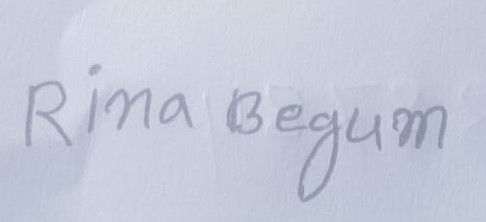 Rina Begum